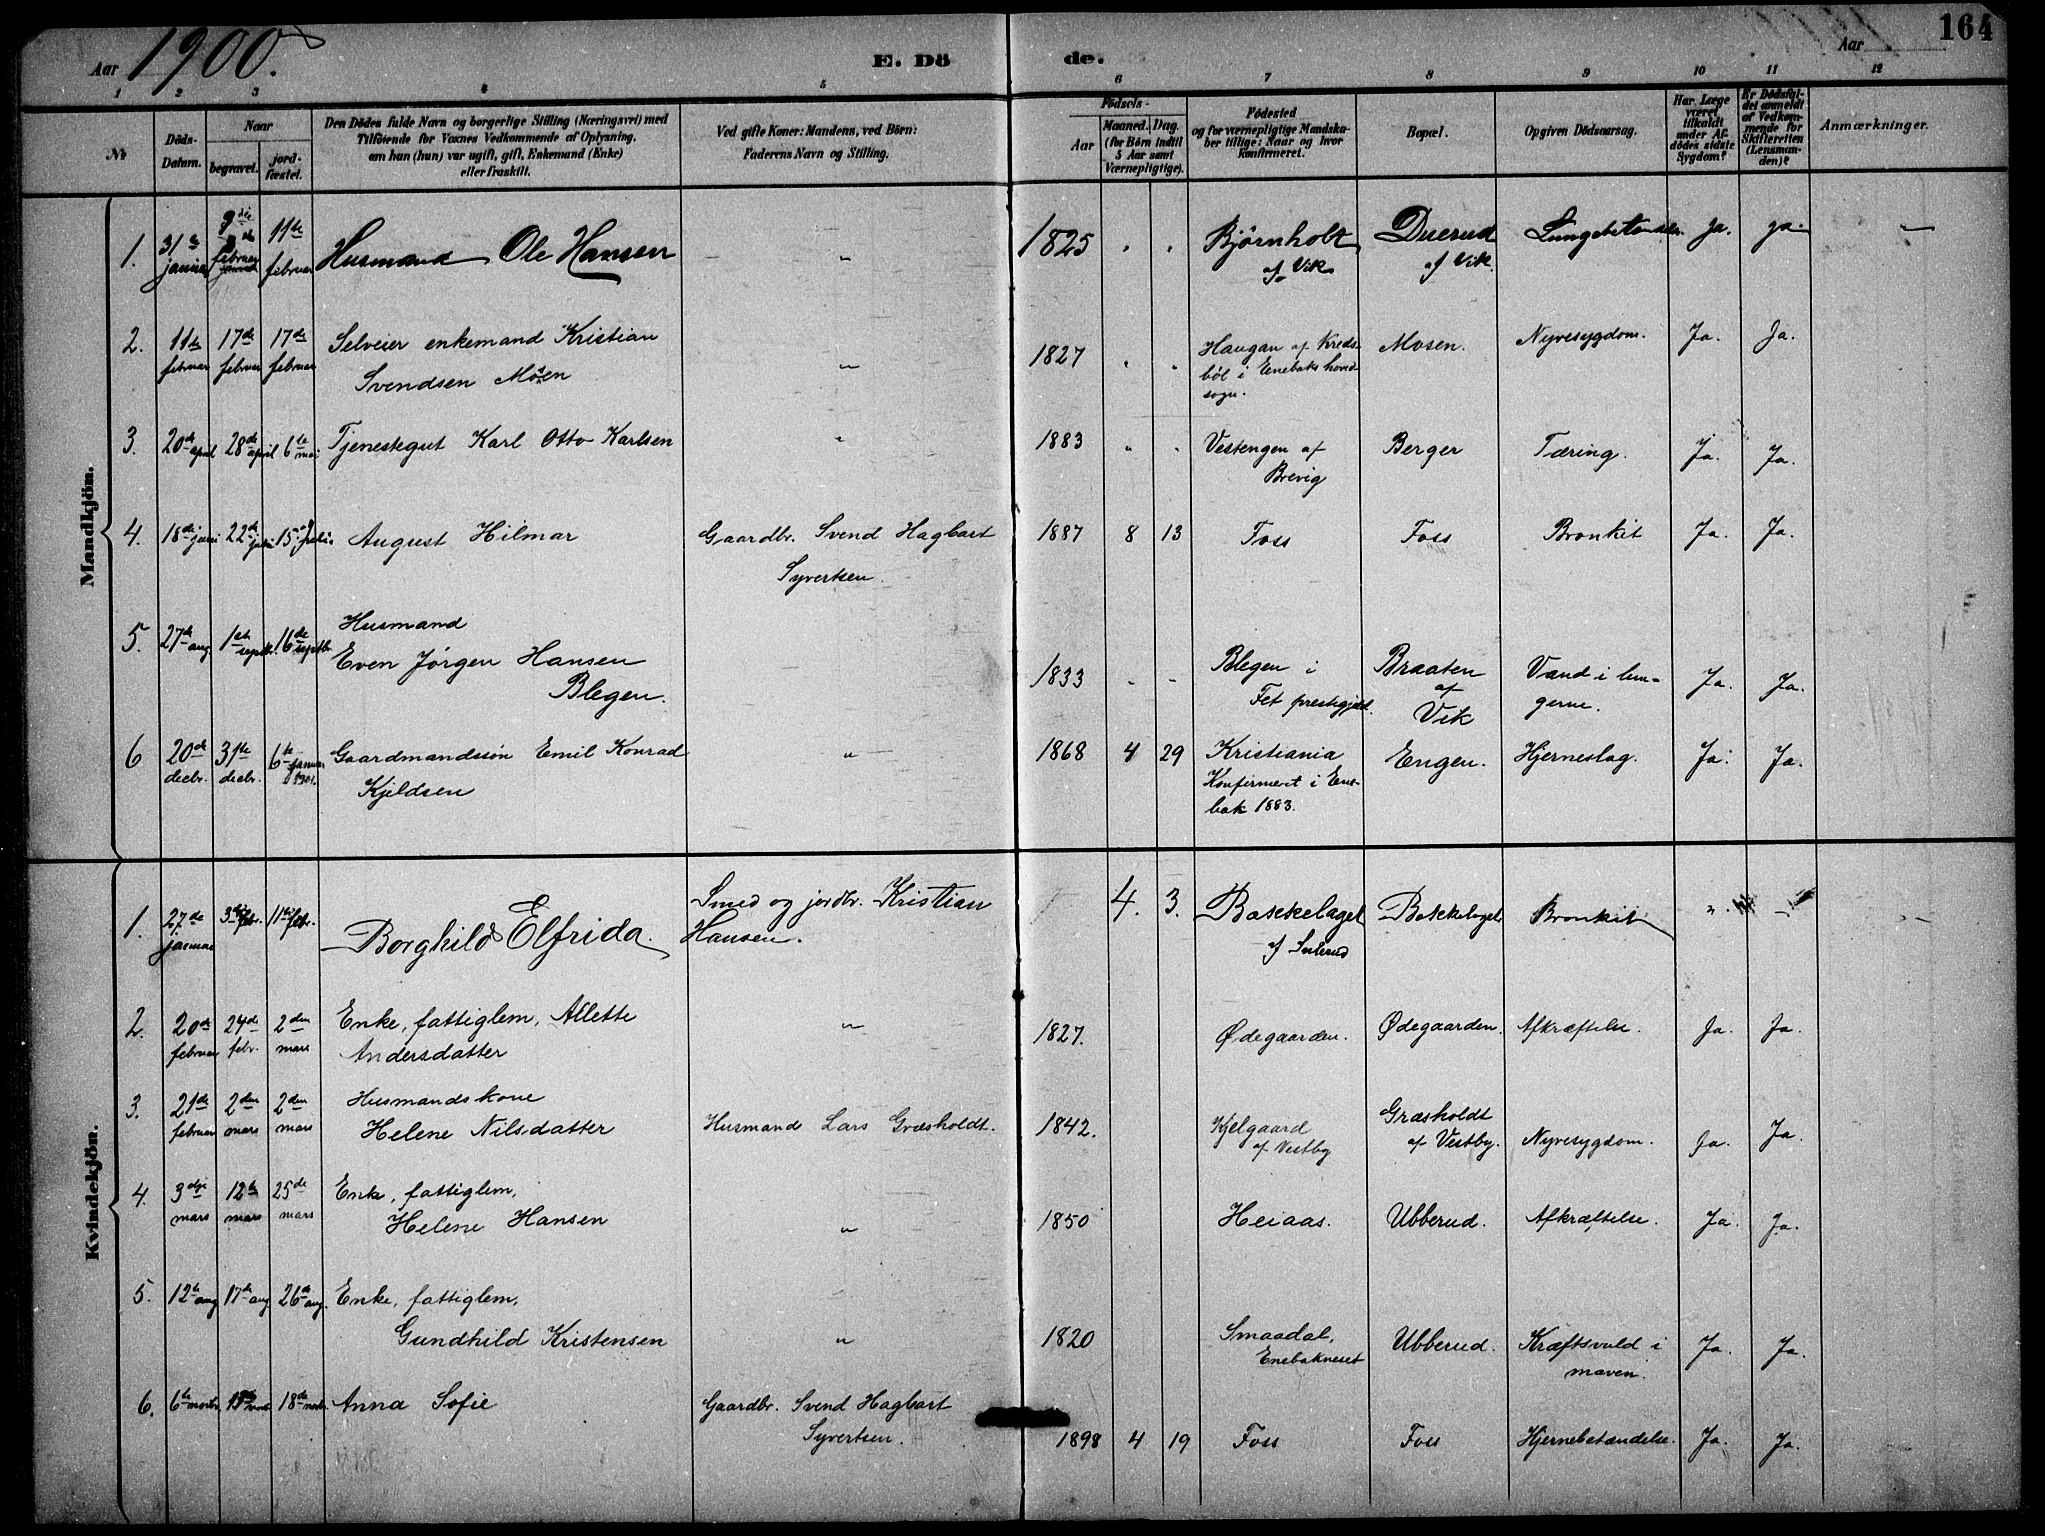 Aar 1900.
E. Dö de.
Aar
164
1 2 3 4 5 6 7 8 9 10 11 12
№
Döds-Datum.
Naar
begravet.
jord-fæstet.
Den Dödes fulde Navn og borgerlige Stilling (Næringsvei) med
Tilföiende for Voxnes Vedkommende af Oplysning,
om han (hun) var ugift, gift, Enkemand (Enke)
eller fraskilt.
Ved gifte Koner: Mandens, ved Börn:
Faderens Navn og Stilling.
Födsels-
Aar
Maaned. Dag.
(for Börn indtil
5 Aar samt
Værnepligtige).
Födested
og for værnepligtige Mandska-
ber tillige: Naar og hvor
konfirmeret.
Bopæl.
Opgiven Dödsaarsag.
Har Læge
været
tilkaldt
under Af-
dödes sidste
Sygdom?
Er Dödsfal-
det anmeldt
af Vedkom-
mende for
Skifteretten
(Lensman-
den)?
Anmærkninger.
Mandkjön.
1. 31te januar februar 11te februar Husmand Ole Hansen " 1825 " " Bjørnholt af Vik Duerud af Vik. Lungebetændelse Ja. ja. "
2. 11te februar 17de februar 17de februar Selveier enkemand Kristian
Svendsen Moen " 1827 " " Haugan af Kreds-
böl i Enebaks hoved-
sogn. Mosen. Nyresygdom. Ja. Ja.
3. 20de april 28de april 6te mai Tjenestegut Karl Otto Karlsen " 1883 " " Vestengen af
Brevig Berger Tæring. Ja. Ja.
4. 18de juni 22de juni 15 August Hilmar Gaardbr. Svend Hagbart
Syvertsen. 1887 8 13 Foss Foss Bronkit Ja. Ja.
5. 27de aug 1ste septbr. 16de septbr. Husmand
Even Jørgen Hansen
Blegen. 1833 - - Blegen i
Fet prestegjeld. Braaten
af
Vik Vand i lun-
gerne. Ja. Ja.
6 20de decbr. 31te decbr. 6te januar 1901. Gaardmandssön Emil Konrad
Kjeldsen " 1868 4 29 Kristiania
Konfirmeret i Ene-
bak 1883. Engen. Hjerneslag. Ja. Ja.
Kvindekjön.
1. 27de januar 3die febr. 11te febr. Borghild Elfrida. Smed og jordbr. Kristian
Hansen. 4. 3. Bakkelaget
af Bakkelaget Bronkit "
2. 20de februar 24de febr. 2den mars Enke, fattiglem, Allette
Andersdatter " 1827. Ødegaarden. Ødegaarden. Afkræftelse. Ja. Ja.
3. 21de februar 2den mars 2den mars Husmandskone
Helene Nilsdatter Husmand Lars Græsholdt. 1842. Kjelgaard
af Vestby Græsholdt
af Vestby. Nyresygdom. Ja. Ja.
4. 3dje mars 12te mars 25de mars Enke, fattiglem,
Helene Hansen " 1850 Heiaas. Ubberud. Afkræftelse. Ja. Ja.
5. 12te aug 17de aug 26de aug. Enke, fattiglem,
Gundhild Kristensen " 1820 Smaadal,
Enebakneset Ubberud. Kræftsvuld i
maven. Ja. Ja.
6. 6te novbr. novbr. 18de novbr. Anna Sofie Gaardbr. Svend Hagbart
Syvertsen. 1898 4 19 Foss Foss Hjernebetændelse. Ja. Ja.